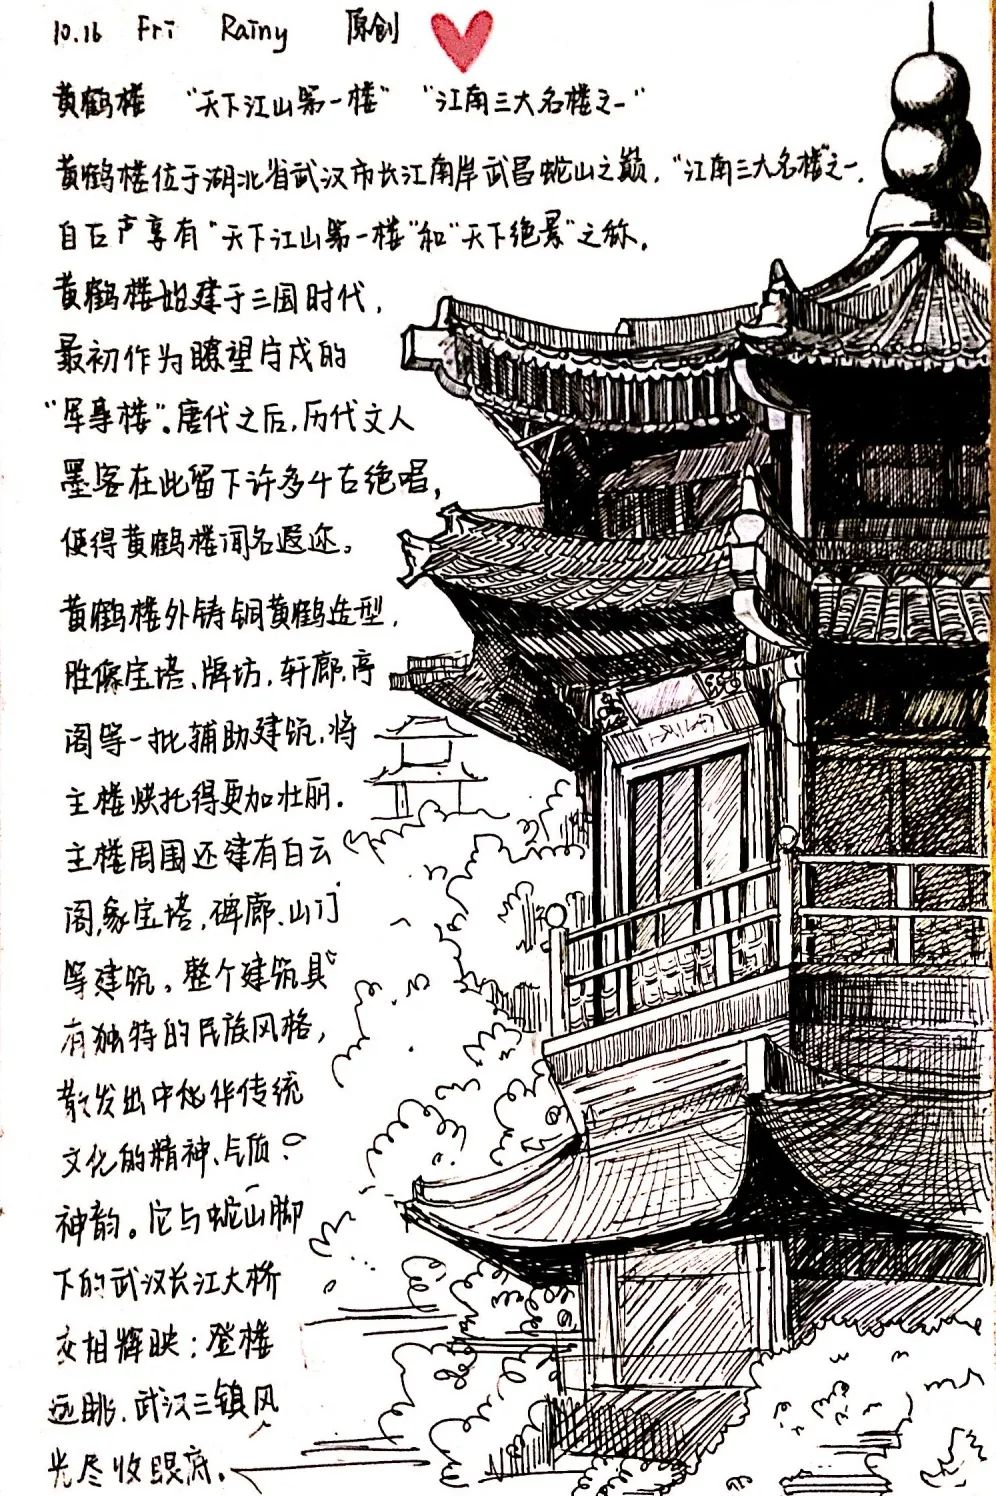 10.16 Fri Rainy 原创
黄鹤楼 “天下江山第一楼” “江南三大名楼之一”
黄鹤楼位于湖北省武汉市长江南岸武昌蛇山之巅，“江南三大名楼”之一，
自古声享有“天下江山第一楼”和“天下绝景”之称。
黄鹤楼始建于三国时代，
最初作为瞭望守戍的
“军事楼”。唐代之后，历代文人
墨客在此留下许多千古绝唱，
使得黄鹤楼闻名遐迩。
黄鹤楼外铸铜黄鹤造型，
胜像宝塔、牌坊、轩廊、亭
阁等一批辅助建筑，将
主楼烘托得更加壮丽。
主楼周围还建有白云
阁，象宝塔，碑廊、山门
等建筑。整个建筑具
有独特的民族风格，
散发出中华传统
文化的精神、气质、
神韵。它与蛇山脚
下的武汉长江大桥
交相辉映；登楼
远眺，武汉三镇风
光尽收眼底。